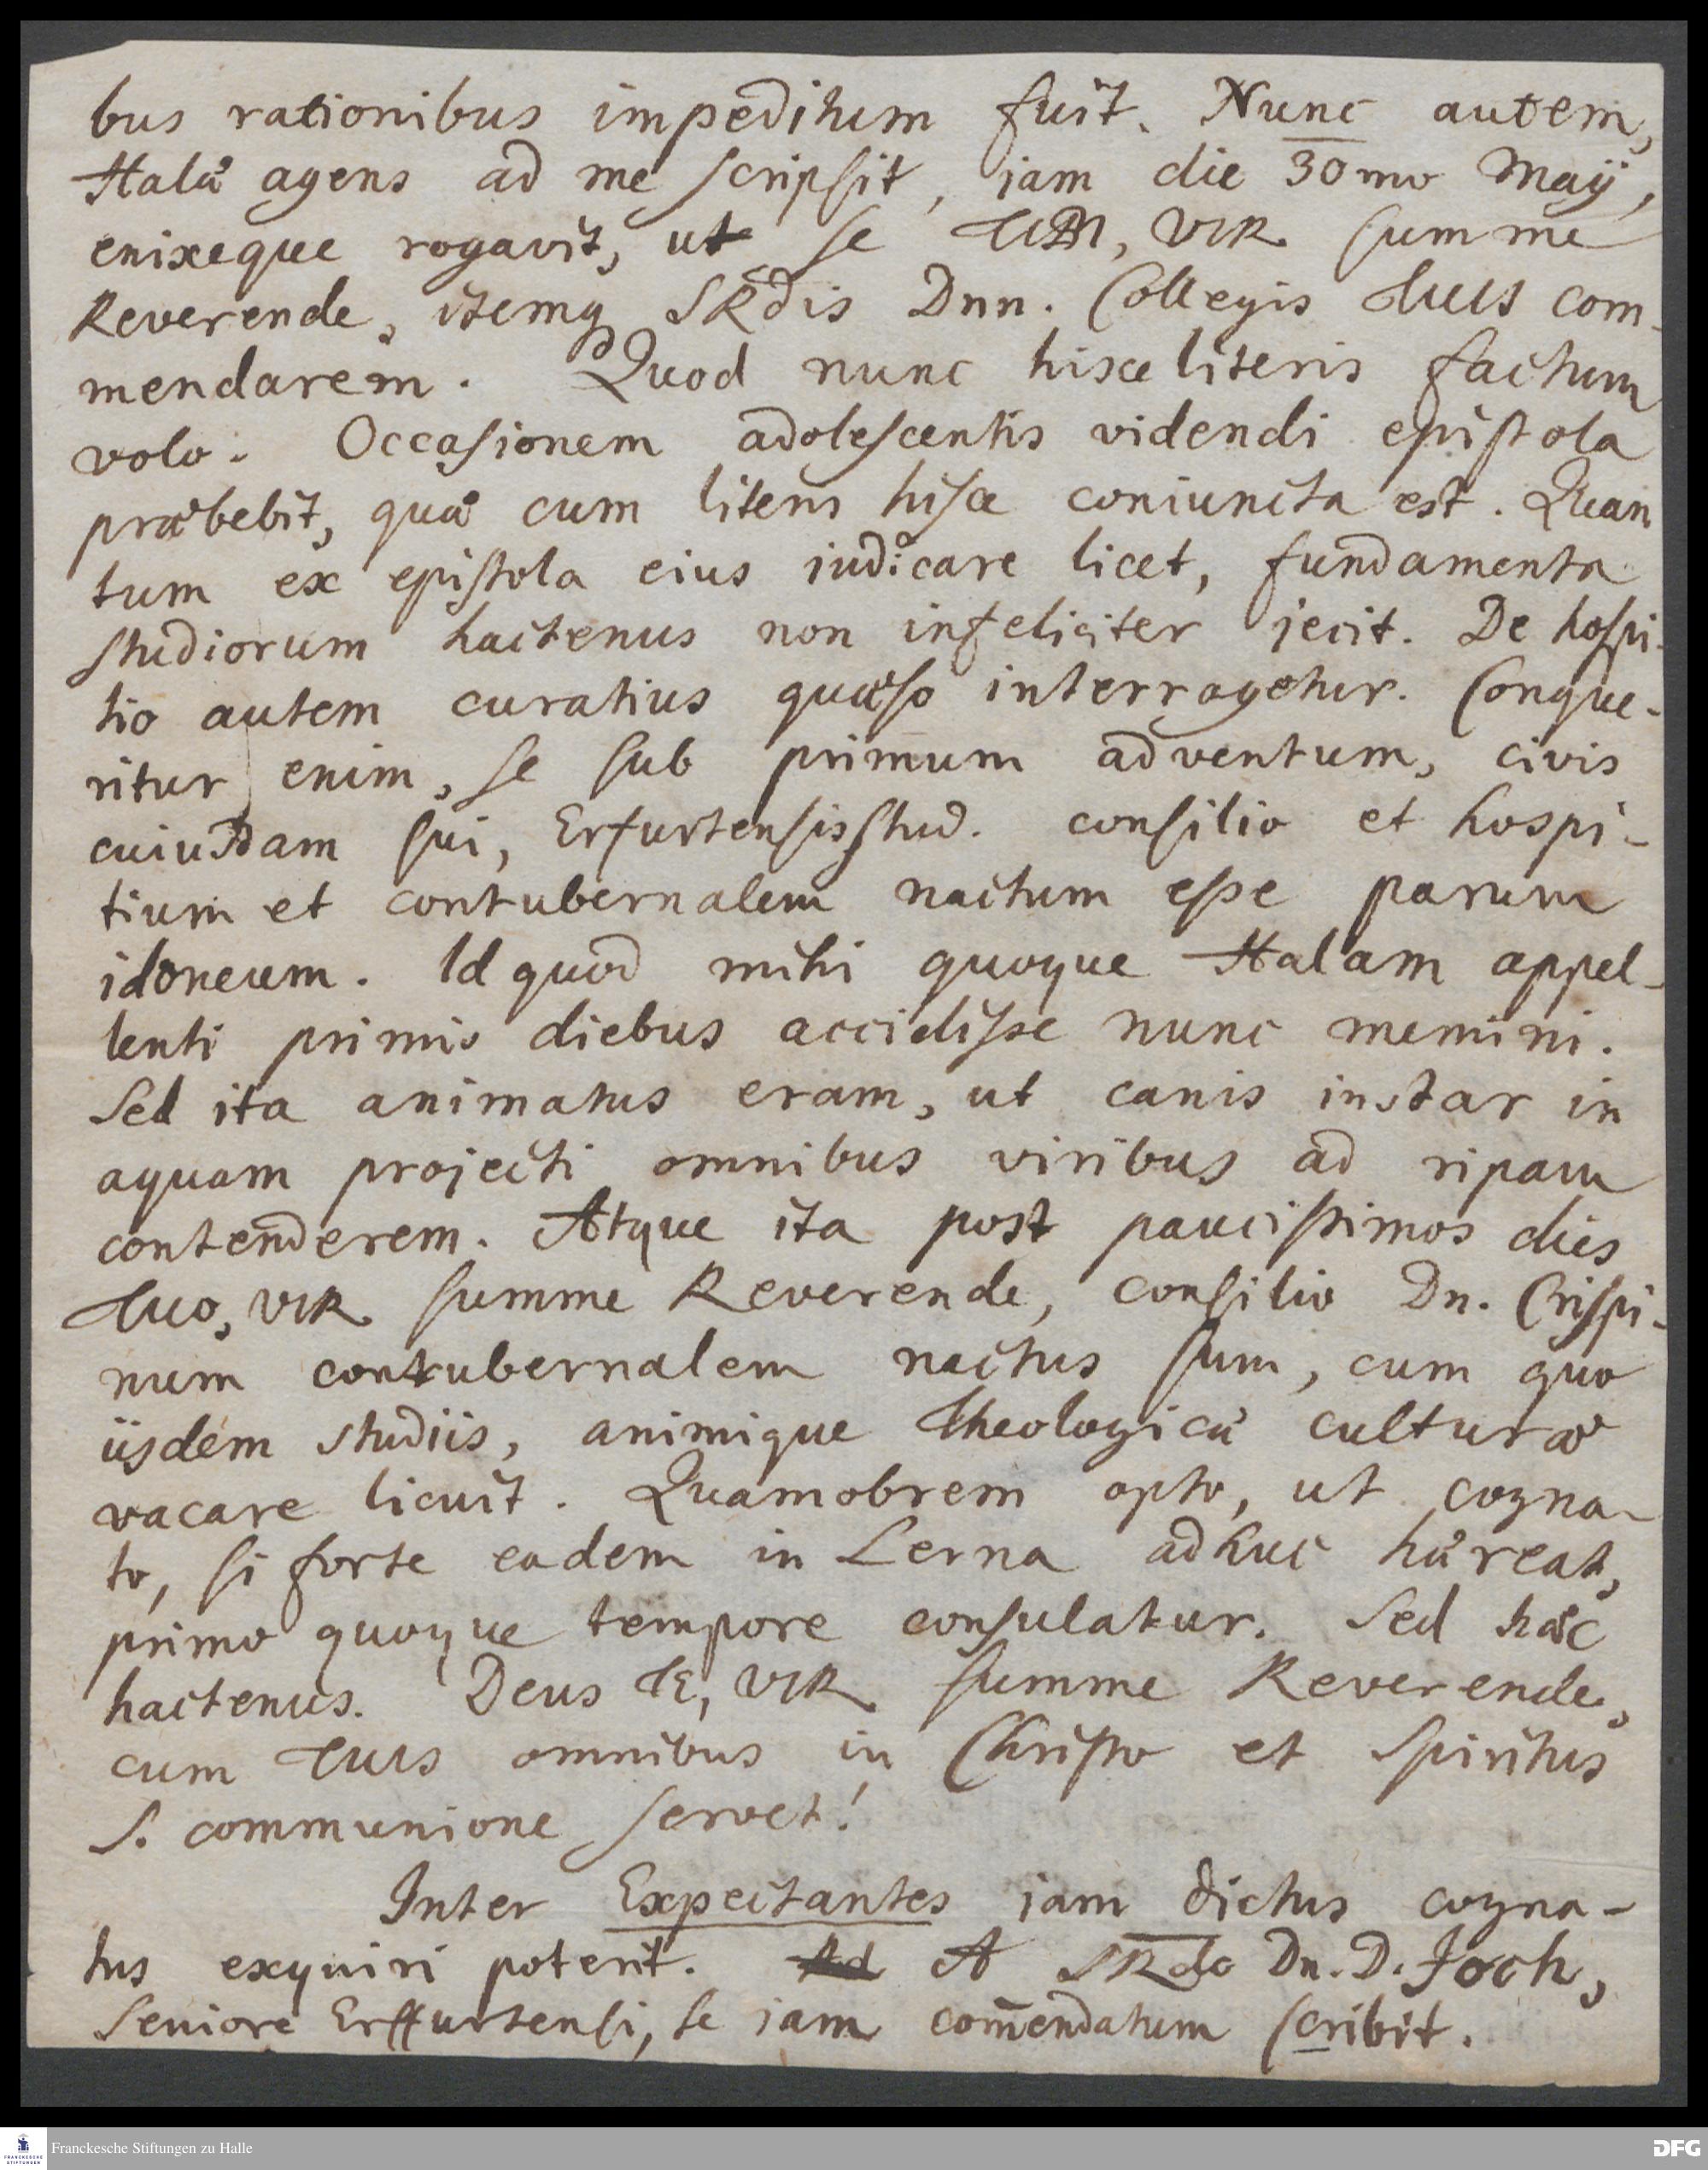 bus rationibus impeditum fuit. Nunc autem,
Halæ agens ad me scripsit, iam die 30mo Maij,
enixeque rogavit, ut se TIBI, VIR summe
Reverende, itemq SRdis Dnn. Collegis TUIS com-
mendarem. Quod nunc hisce literis factum
volo. Occasionem adolescentis videndi epistola
præbebit, quæ cum literis hisce coniuncta est. Quan
tum ex epistola eius iudicare licet, fundamenta
studiorum hactenus non infeliciter jecit. De hospi-
tio autem curatius quæso interrogetur. Conque-
ritur enim, se sub primum adventum, civis
cuiusdam sui, Erfurtensis stud. consilio et hospi-
tium et contubernalem nactum esse parum
idoneum. Id quod mihi quoque Halam appel-
lenti primis diebus accidisse nunc memini.
Sed ita animatus eram, ut canis instar in
aquam projecti omnibus viribus ad ripam
contenderem. Atque ita post paucissimos dies
TUO, VIR summe Reverende, consilio Dn. Crispi-
num contubernalem nactus sum, cum quo
iisdem studiis, animique Theologicæ culturæ
vacare licuit. Quamobrem opto, ut cogna-
to, si forte eadem in Lerna adhuc hæreat,
primo quoque tempore consulatur. Sed hæc
hactenus. Deus TE, VIR summe Reverende,
cum TUIS omnibus in Christo et Spiritus
S. communione servet!
Inter Expectantes iam dictus cogna-
tus exquiri poterit. A SRdo Dn. D. Joch,
Seniore Erffurtensi, se iam com̄endatum scribit.
Franckesche Stiftungen zu Halle
FRANCKESCHE STIFTUNGEN
DFG